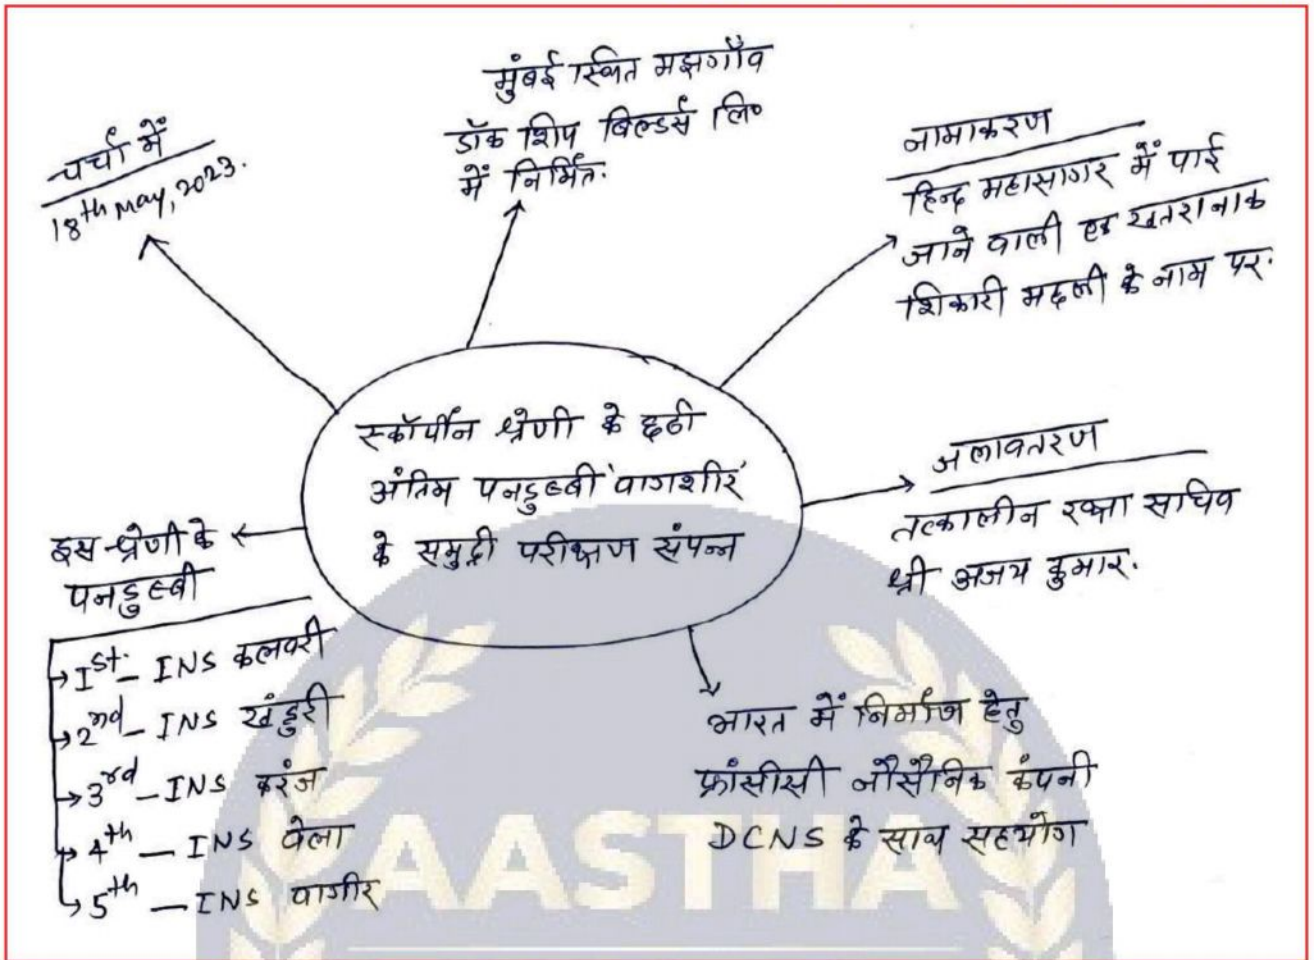 चर्चा में
18th May, 2023.
मुंबई स्थित मझगाँव
डॉक शिप बिल्डर्स लि०
में निर्मित.
नामाकरण
हिन्द महासागर में पाई
जाने वाली एक खतरानाक
शिकारी मछली के नाम पर.
स्कॉर्पीन श्रेणी के छठी
अंतिम पनडुब्बी 'वागशीर'
के समुद्री परीक्षण संपन्न
जलावतरण
तत्कालीन रक्षा सचिव
श्री अजय कुमार.
इस श्रेणी के
पनडुब्बी
1st. - INS कलवरी
2nd - INS खंडुरी
3rd - INS करंज
4th - INS वेला
5th - INS वागीर
भारत में निर्माण हेतु
फ्रांसीसी नौसैनिक कंपनी
DCNS के साथ सहयोग
AASTHA